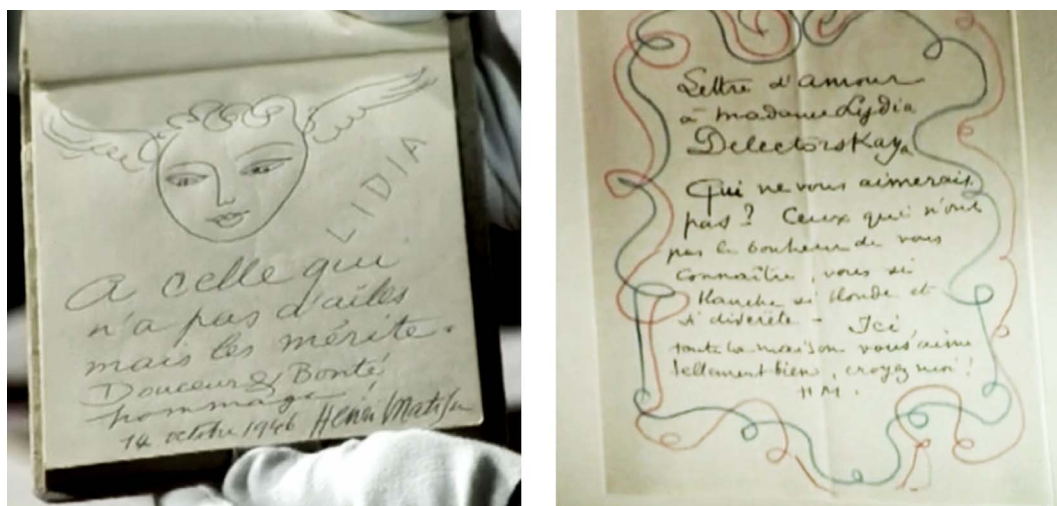 LIDIA
A celle qui
n'a pas d'ailes
mais les mérite.
Douceur & Bonté
hommage
14 octobre 1946 Henri Matisse
Lettre d'amour
à madame Lydia
Delectorskaya
Qui ne vous aimerais
pas ? Ceux qui n'ont
pas le bonheur de vous
connaître, vous si
blanche si blonde et
si discrète - Ici,
toute la maison vous aime
tellement bien, croyez moi !
H M.